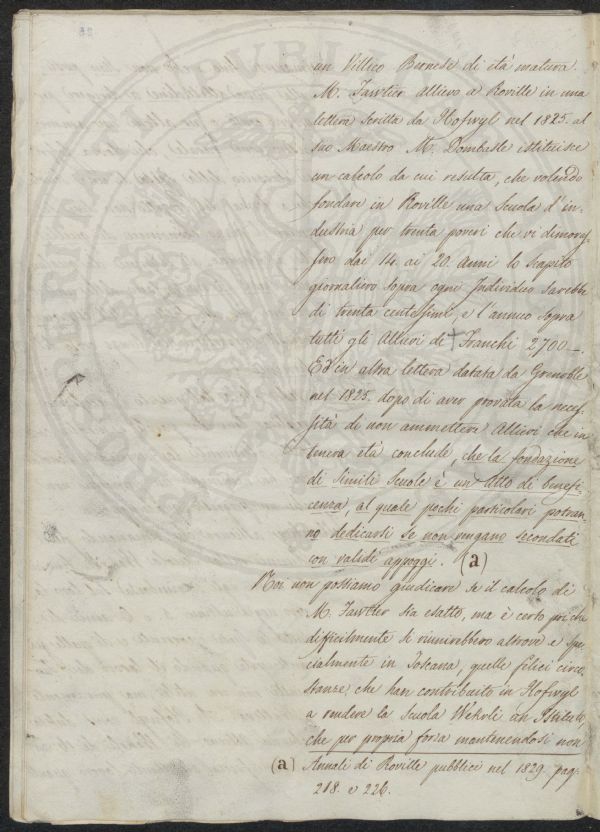 un Villico Bernese di età matura.
M. Tawtier Allievo a Roville in una
lettera scritta da Hofwyl nel 1825. al
suo Maestro M. Dombasle istituisce
un calcolo da cui resulta, che volendo
fondare in Roville una Scuola d'in-
dustria per trenta poveri che vi dimoras-
sero dai 14. ai 20. Anni lo scapito
giornaliero sopra ogni Individuo sarebbe
di trenta centesimi, e l'annuo sopra
tutti gli Allievi di Franchi 2,700—.
Ed in altra lettera datata da Grenoble
nel 1825. dopo di aver provata la neces-
sità di non ammettere Allievi che in
tenera età conclude, che la fondazione
di simili Scuole è un Atto di benefi-
cenza, al quale pochi particolari potran-
no dedicarsi se non vengano secondati
con validi appoggi. (a)
Noi non possiamo giudicare se il calcolo di
M. Tawtier sia esatto, ma è certo poi che
difficilmente si riunirebbero altrove e spe-
cialmente in Toscana, quelle felici circo-
stanze, che han contribuito in Hofwyl
a rendere la Scuola Wehrli un Istituto,
che per propria forza mantenendosi non
(a) Annali di Roville pubblici nel 1829. pag:
218. e 226.